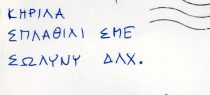 ΚΗΡΙΛΑ
ΣΠΛΑΘΙΛΙ ΣΜΕ
ΣΩΛΥΝΥ ΔΛΧ.